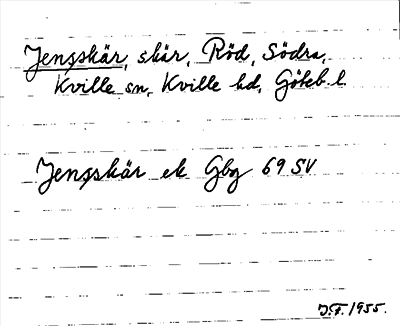 Jensskär, skär, Röd, Södra,
Kville sn, Kville hd, Göteb. l.
Jensskär ek Gbg 69 SV
J.F. 1955.